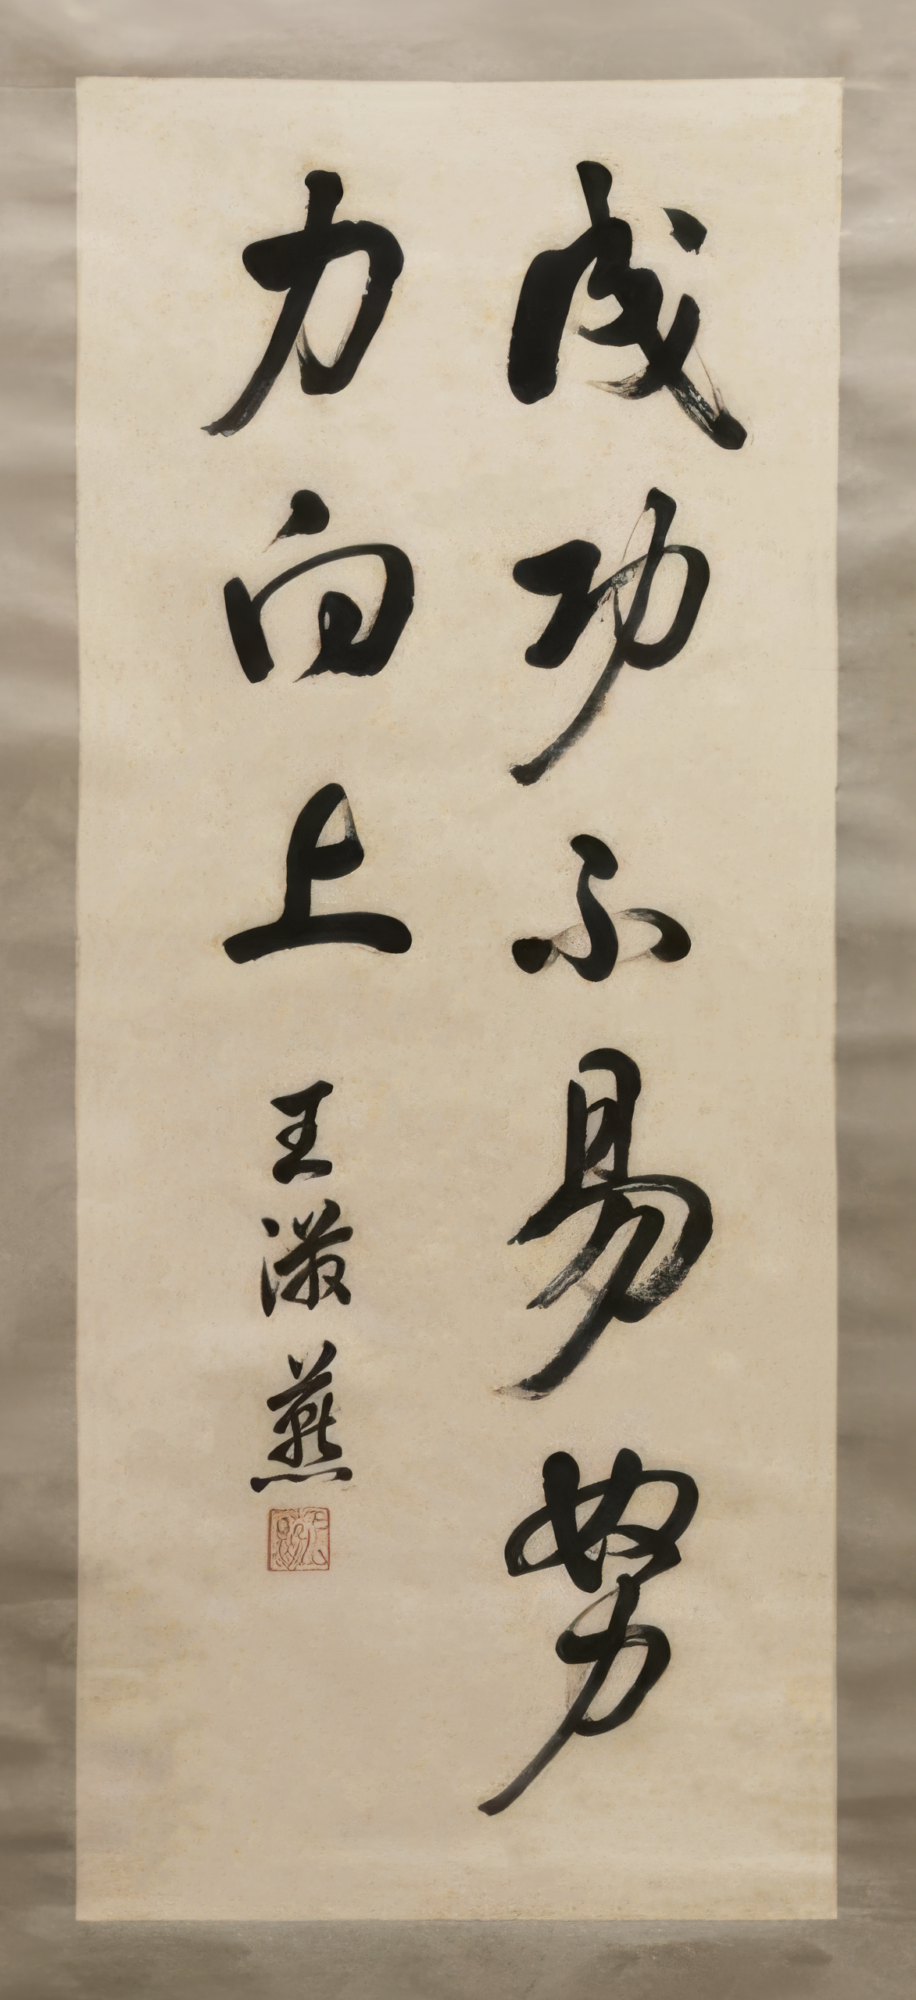 成功不易努
力向上
王澂燕